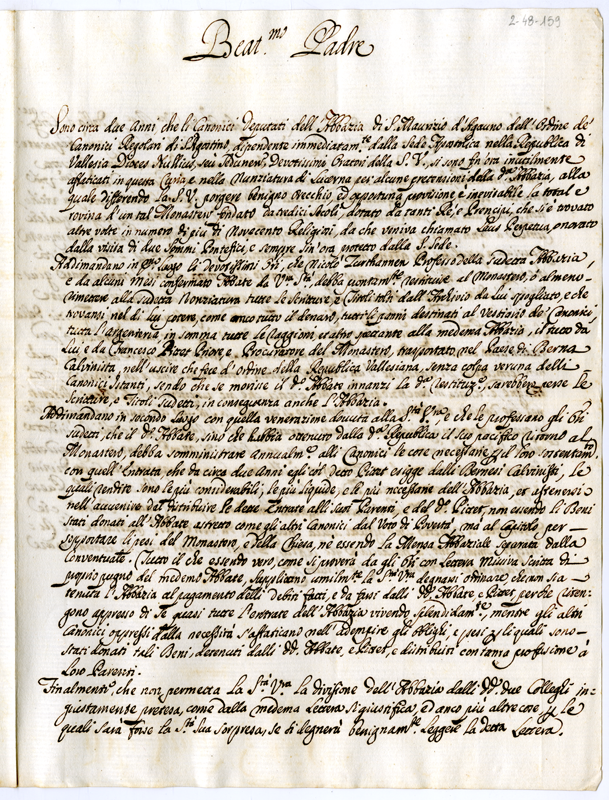 2-48-159
Beat.mo Padre
Sono circa due Anni che li Canonici Deputati dell'Abbazia di S. Maurizio d'Agauno dell'Ordine de
Canonici Regolari di S. Agostino, dipendente immediatam.te dalla Sede Apostolica nella Republica di
Vallesia Dioces Nullius, seu Sedunen, devotissimi Oratori della S. V., si sono fin ora inutilmente
affaticati in questa Curia e nella Nunziatura di Lucerna per alcune pretensioni della d.a Abbazia, alla
quale differendo la S. V. porgere benigno orecchio ed opportuna provisione è inevitabile la total e
rovina d'un tal Monastero fondato da tredici Secoli, dotato da tanti Rè, e Prencipi, che si è trovato
altre volte in numero di più di Novecento Religiosi, da che veniva chiamato Laus Perpetua, onorato
dalla visita di due Sommi Pontefici, e sempre sin'ora protetto dalla S. Sede.
Addimandano in p.o luogo li devotissimi Ori, che Nicolò Zurthannen Professo della sudetta Abbazia,
e da alcuni mesi confirmato Abbate da V.ra S.tà, debba restituire al Monastero, o almeno
rimettere alla sudetta Nonziatura tutte le Scritture e Titoli dell'Archivio da lui spogliato, e che
trovansi nel di lui potere, come anco tutto il denaro, tutti li panni destinati al Vestiario de' Canonici,
tutta l'argenteria, in somma tutte le Raggioni, et altro spettante alla medema Abazia, il tutto da
Lui, e da Francesco Pietet Priore, e Procuratore del Monastero, trasportato nel Paese di Berna
Calvinista, nell'uscire che fece d'ordine della Republica Vallesiana, senza colpa veruna delli
Canonici Istanti, sendo che se morisse il d.o Abbate innanzi la d.a Restituz.e sarebbero perse le
Scritture, e Titoli Sudetti, in conseguenza anche l'Abbazia.
Addimandano in secondo luogo con quella venerazione dovuta alla S.tà V.ra, e che le professano gli Ori
sudetti, che il d.o Abbate, sino che habbia ottenuto dalla d.a Republica il suo pacifico ritorno al
Monastero, debba somministrare annualm.te alli Canonici le cose necessarie p il loro sostentam.to
con quell'Entrata, che da circa due Anni egli col detto Pietet esigge dalli Bernesi Calvinisti, le
quali rendite sono le più considerabili, le più liquide, e le più necessarie dell'Abbazia, et astenersi
nell'avvenire dal distribuire le dette Entrate alli suoi Parenti, e del d.o Pietet, non essendo li Beni
stati donati all'Abbate astretto come gli altri Canonici dal Voto di Povertà, ma al Capitolo per
sopportare li pesi del Monastero, e della Chiesa, nè essendo la Mensa Abbaziale separata dalla
Conventuale. Tutto il che essendo vero, come si proverà da gli Ori con Lettera Missiva Scritta di
proprio pugno del medemo Abbate, supplicano umilm.te la S.tà V.ra degnarsi ordinare che non sia
tenuta l'Abbazia al pagamento delli Debiti fatti, e da farsi dalli dd. Abbate, e Pietet, perche riten-
gono appresso di Se quasi tutte l'entrate dell'Abbazia vivendo splendidam.te, mentre gli altri
Canonici oppressi dalla necessità s'affaticano nell'adempire gli obblighi, e pesi p li quali sono
stati donati tali Beni, detenuti dalli dd. Abbate, e Pietet, e distribuiti con tanta profusione à
Loro Parenti.
Finalmente, che non permetta la S.tà V.ra la divisione dell'Abbazia dalli dd. due Collegli in-
giustamente pretesa, come dalla medema Lettera si giustifica, ed anco più altre cose, p le
quali sarà forse la S.tà Sua sorpresa, se si degnerà benignam.te leggere la detta Lettera.